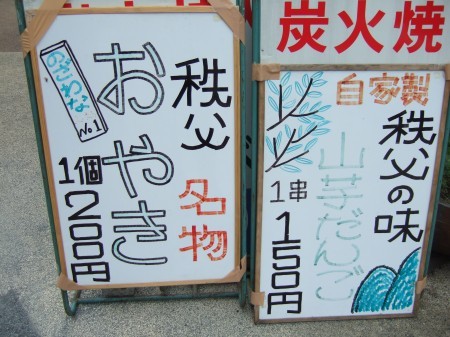 秩父
名物
おやき
のざわな
No.1
1個200円
炭火焼
自家製
秩父の味
山芋だんご
1串150円